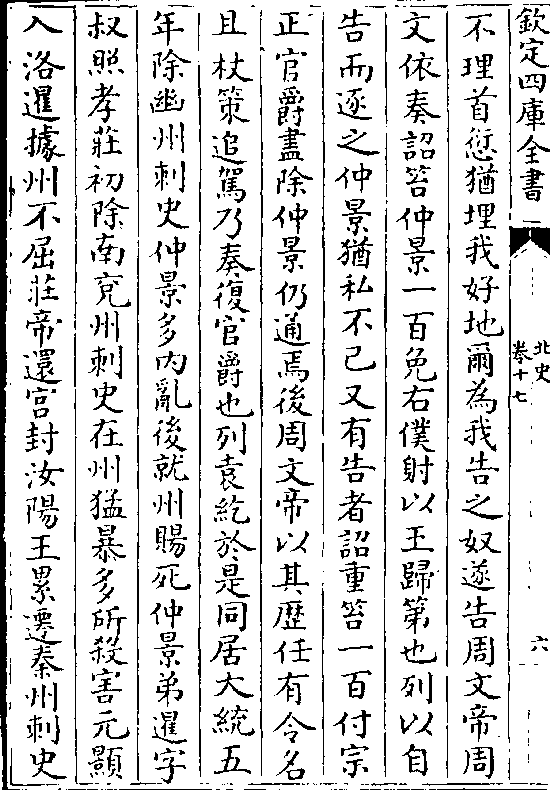 欽定四庫全書
北史
卷十七
六
不理首愆猶埋我好地爾為我告之奴遂告周文帝周
文依奏詔笞仲景一百免右僕射以王歸第也列以自
告而逐之仲景猶私不已又有告者詔重笞一百付宗
正官爵盡除仲景仍通焉後周文帝以其歴任有令名
且杖策追駕乃奏復官爵也列袁紇於是同居大統五
年除幽州刺史仲景多内亂後就州賜死仲景弟暹字
叔照孝莊初除南兖州刺史在州猛暴多所殺害元顯
入洛暹據州不屈莊帝還宫封汝陽王累遷秦州刺史